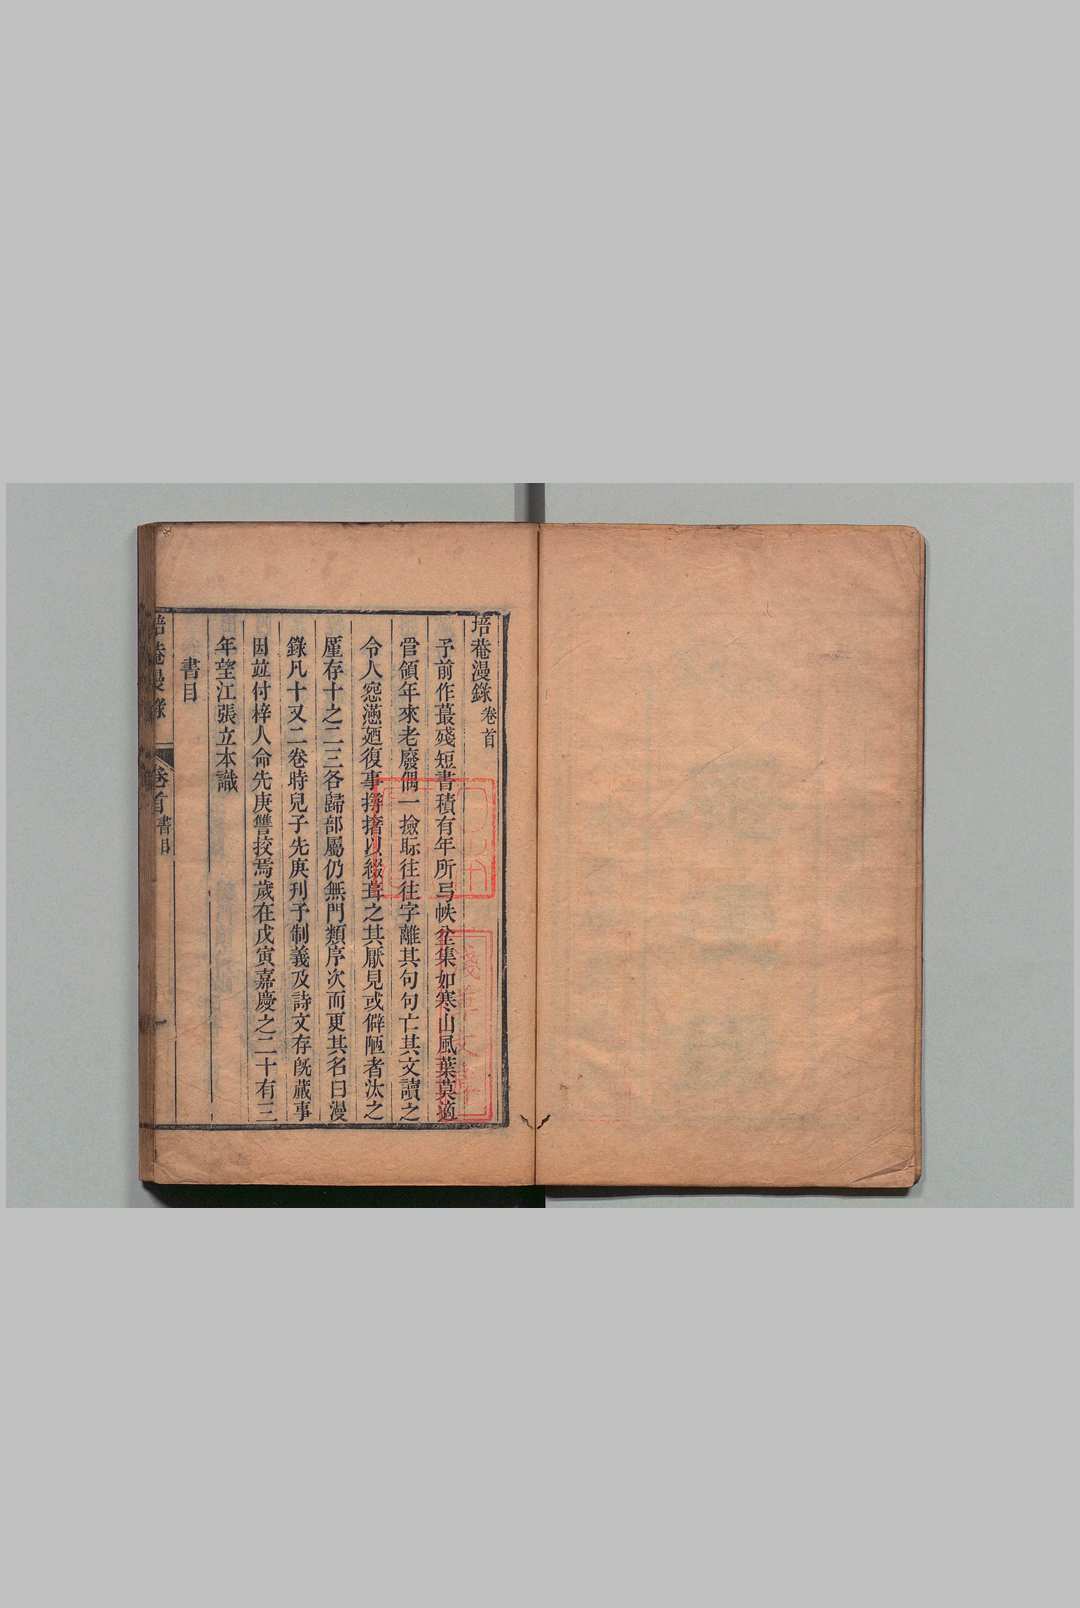 培菴漫錄 卷首
予前作蕞殘短書積有年所弓帙坌集如寒山風葉莫適
管領年來老廢偶一撿眎往往字離其句句亡其文讀之
令人惌懣廼復事撏撦以綴葺之其厭見或僻陋者汰之
厪存十之二三各歸部屬仍無門類序次而更其名曰漫
錄凡十又二卷時兒子先庚刋予制義及詩文存旣蕆事
因竝付梓人命先庚讐挍焉歲在戊寅嘉慶之二十有三
年望江張立本識
書目
培菴漫錄 卷首 書目 一